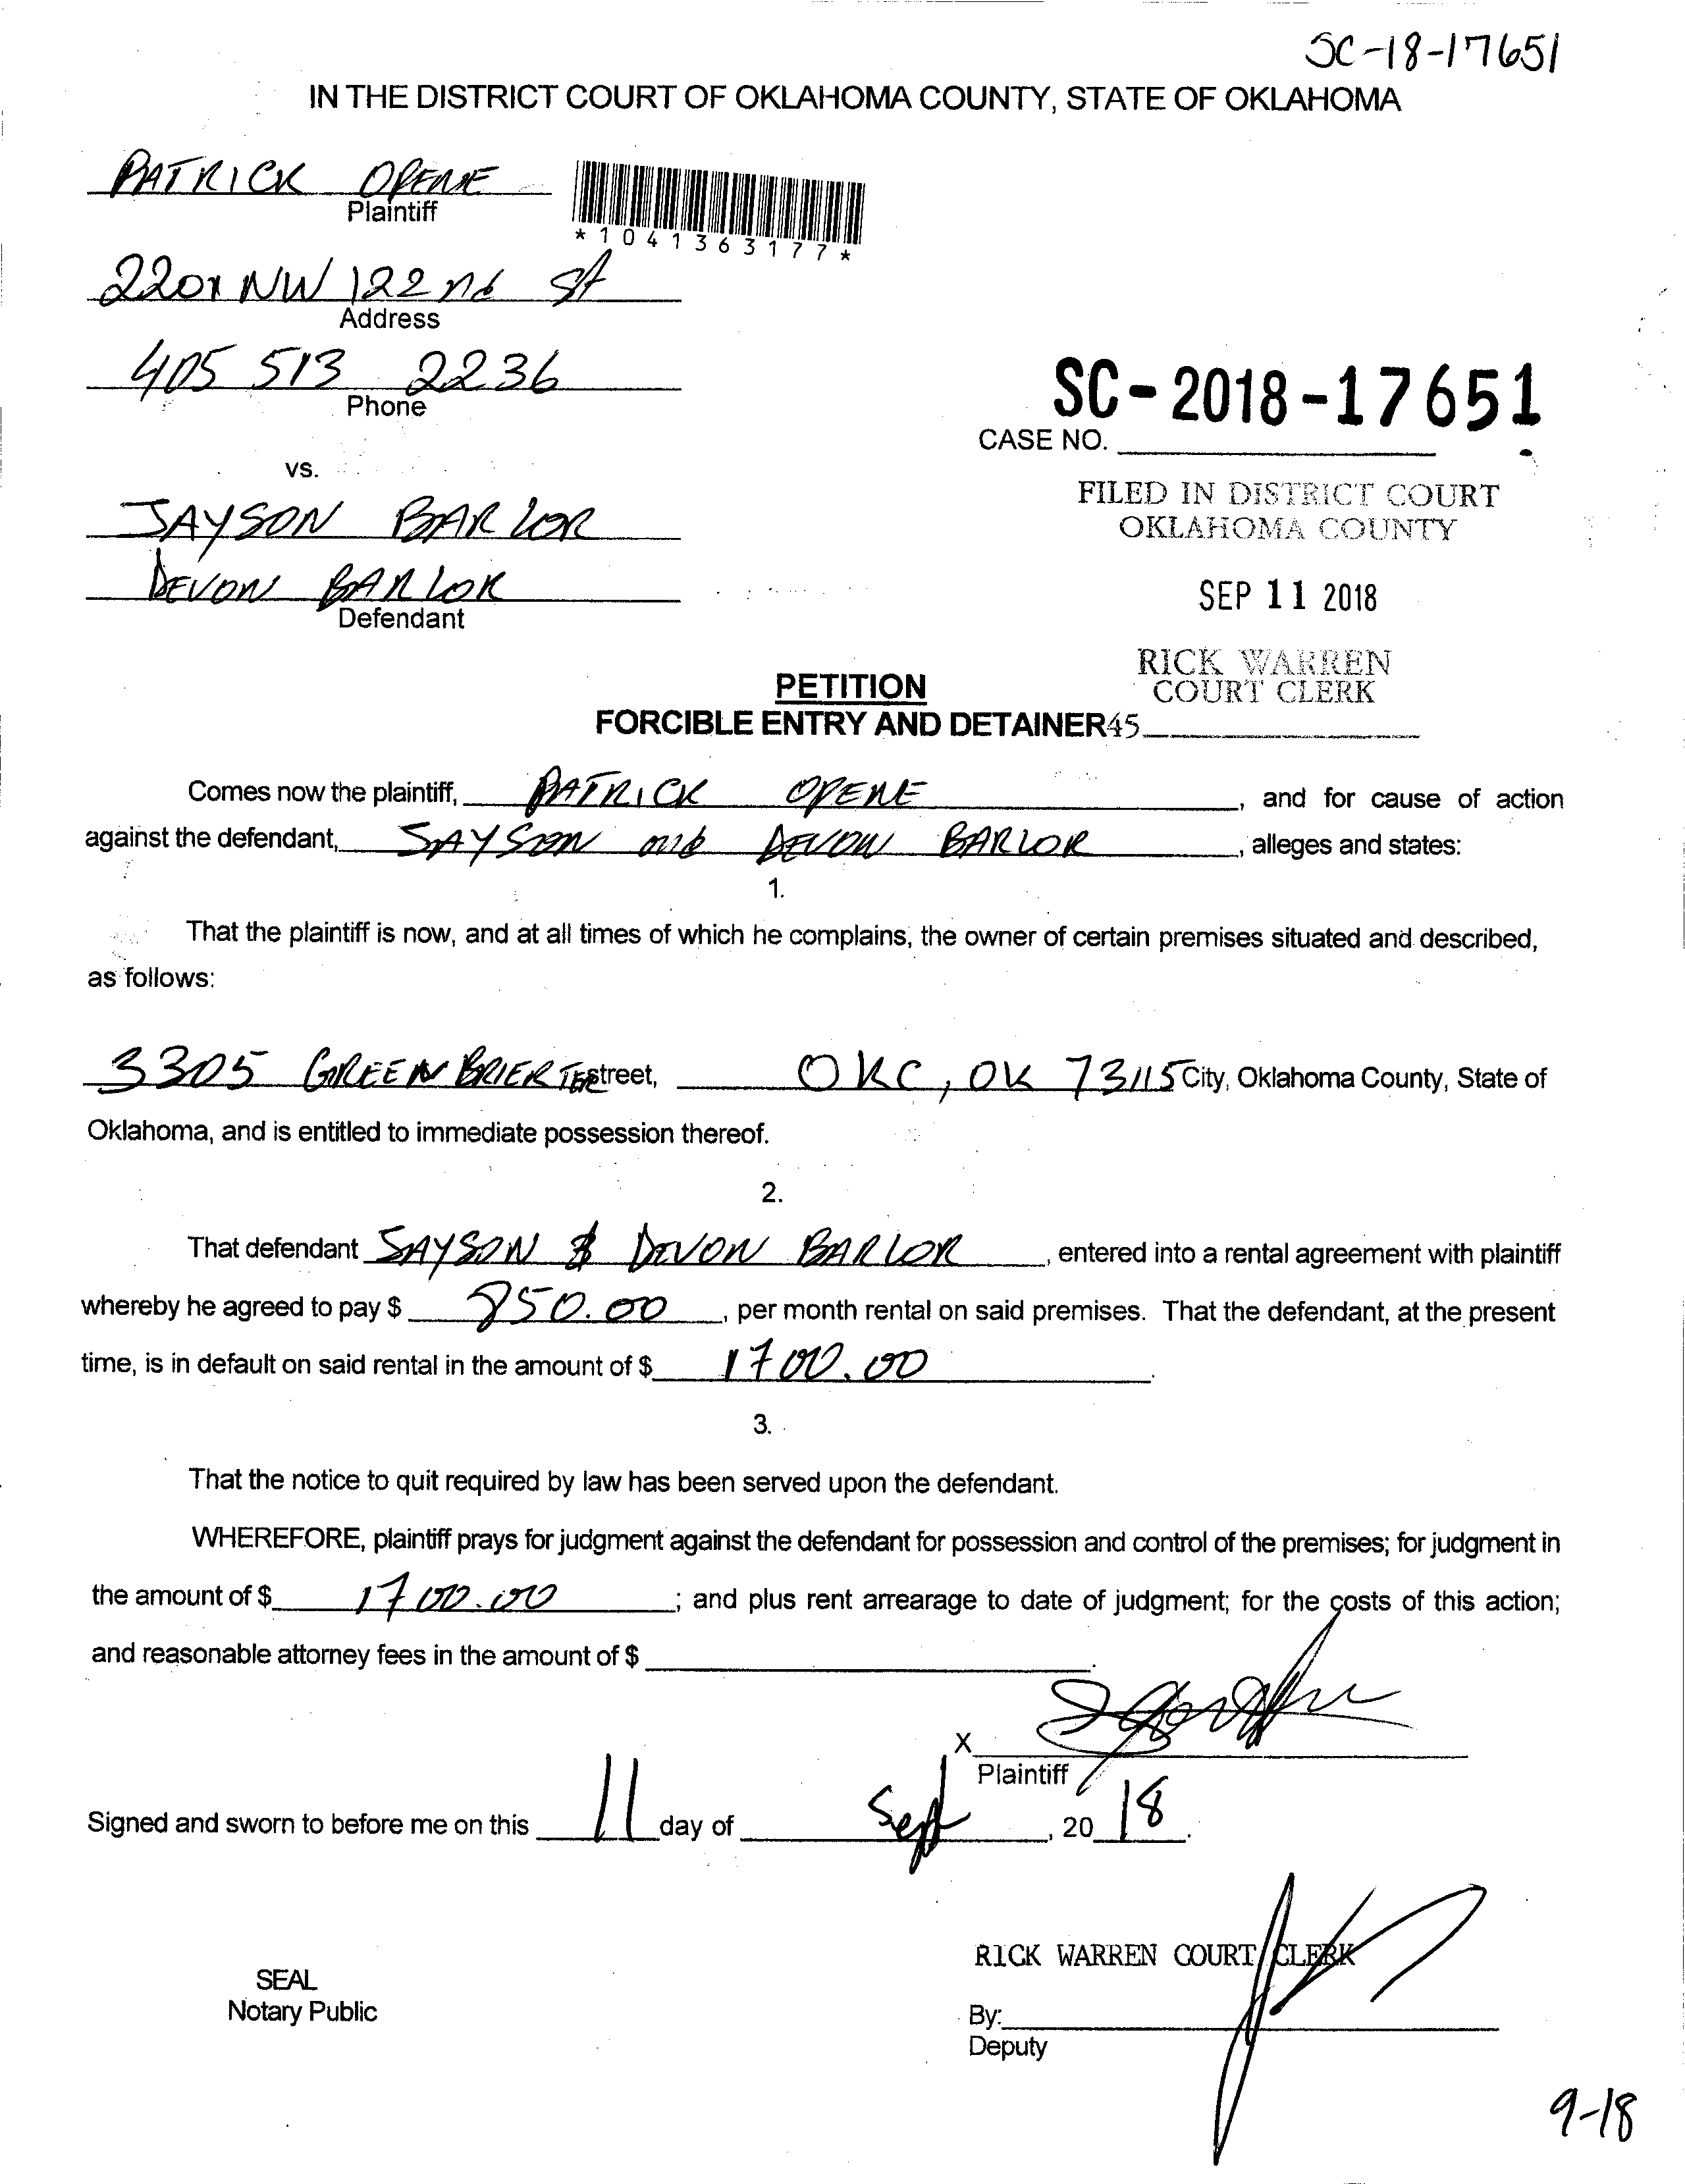 SC-18-17651
IN THE DISTRICT COURT OF OKLAHOMA COUNTY, STATE OF OKLAHOMA
PATRICK OPENE
Plaintiff
*1041363177*
NW 122nd St
Address
405 513 2236
Phone
SC-2018-17651
CASE NO.
vs.
FILED IN DISTRICT COURT
OKLAHOMA COUNTY
JAYSON BARLOR
DEVON BARLOR
Defendant
SEP 11 2018
RICK WARREN
COURT CLERK
PETITION
FORCIBLE ENTRY AND DETAINER 45
Comes now the plaintiff, PATRICK OPENE, and for cause of action
against the defendant, JAYSON and DEVON BARLOR, alleges and states:
1.
That the plaintiff is now, and at all times of which he complains, the owner of certain premises situated and described,
as follows:
3305 GREEN BRIER TER street, OKC, OK 73115 City, Oklahoma County, State of
Oklahoma, and is entitled to immediate possession thereof.
2.
That defendant JAYSON & DEVON BARLOR, entered into a rental agreement with plaintiff
whereby he agreed to pay $ 850.00, per month rental on said premises. That the defendant, at the present
time, is in default on said rental in the amount of $ 1700.00.
3.
That the notice to quit required by law has been served upon the defendant.
WHEREFORE, plaintiff prays for judgment against the defendant for possession and control of the premises; for judgment in
the amount of $ 1700.00; and plus rent arrearage to date of judgment; for the costs of this action;
and reasonable attorney fees in the amount of $ .
X
Plaintiff
Signed and sworn to before me on this 11 day of Sept, 20 18.
RICK WARREN COURT CLERK
SEAL
Notary Public
By:
Deputy
9-18